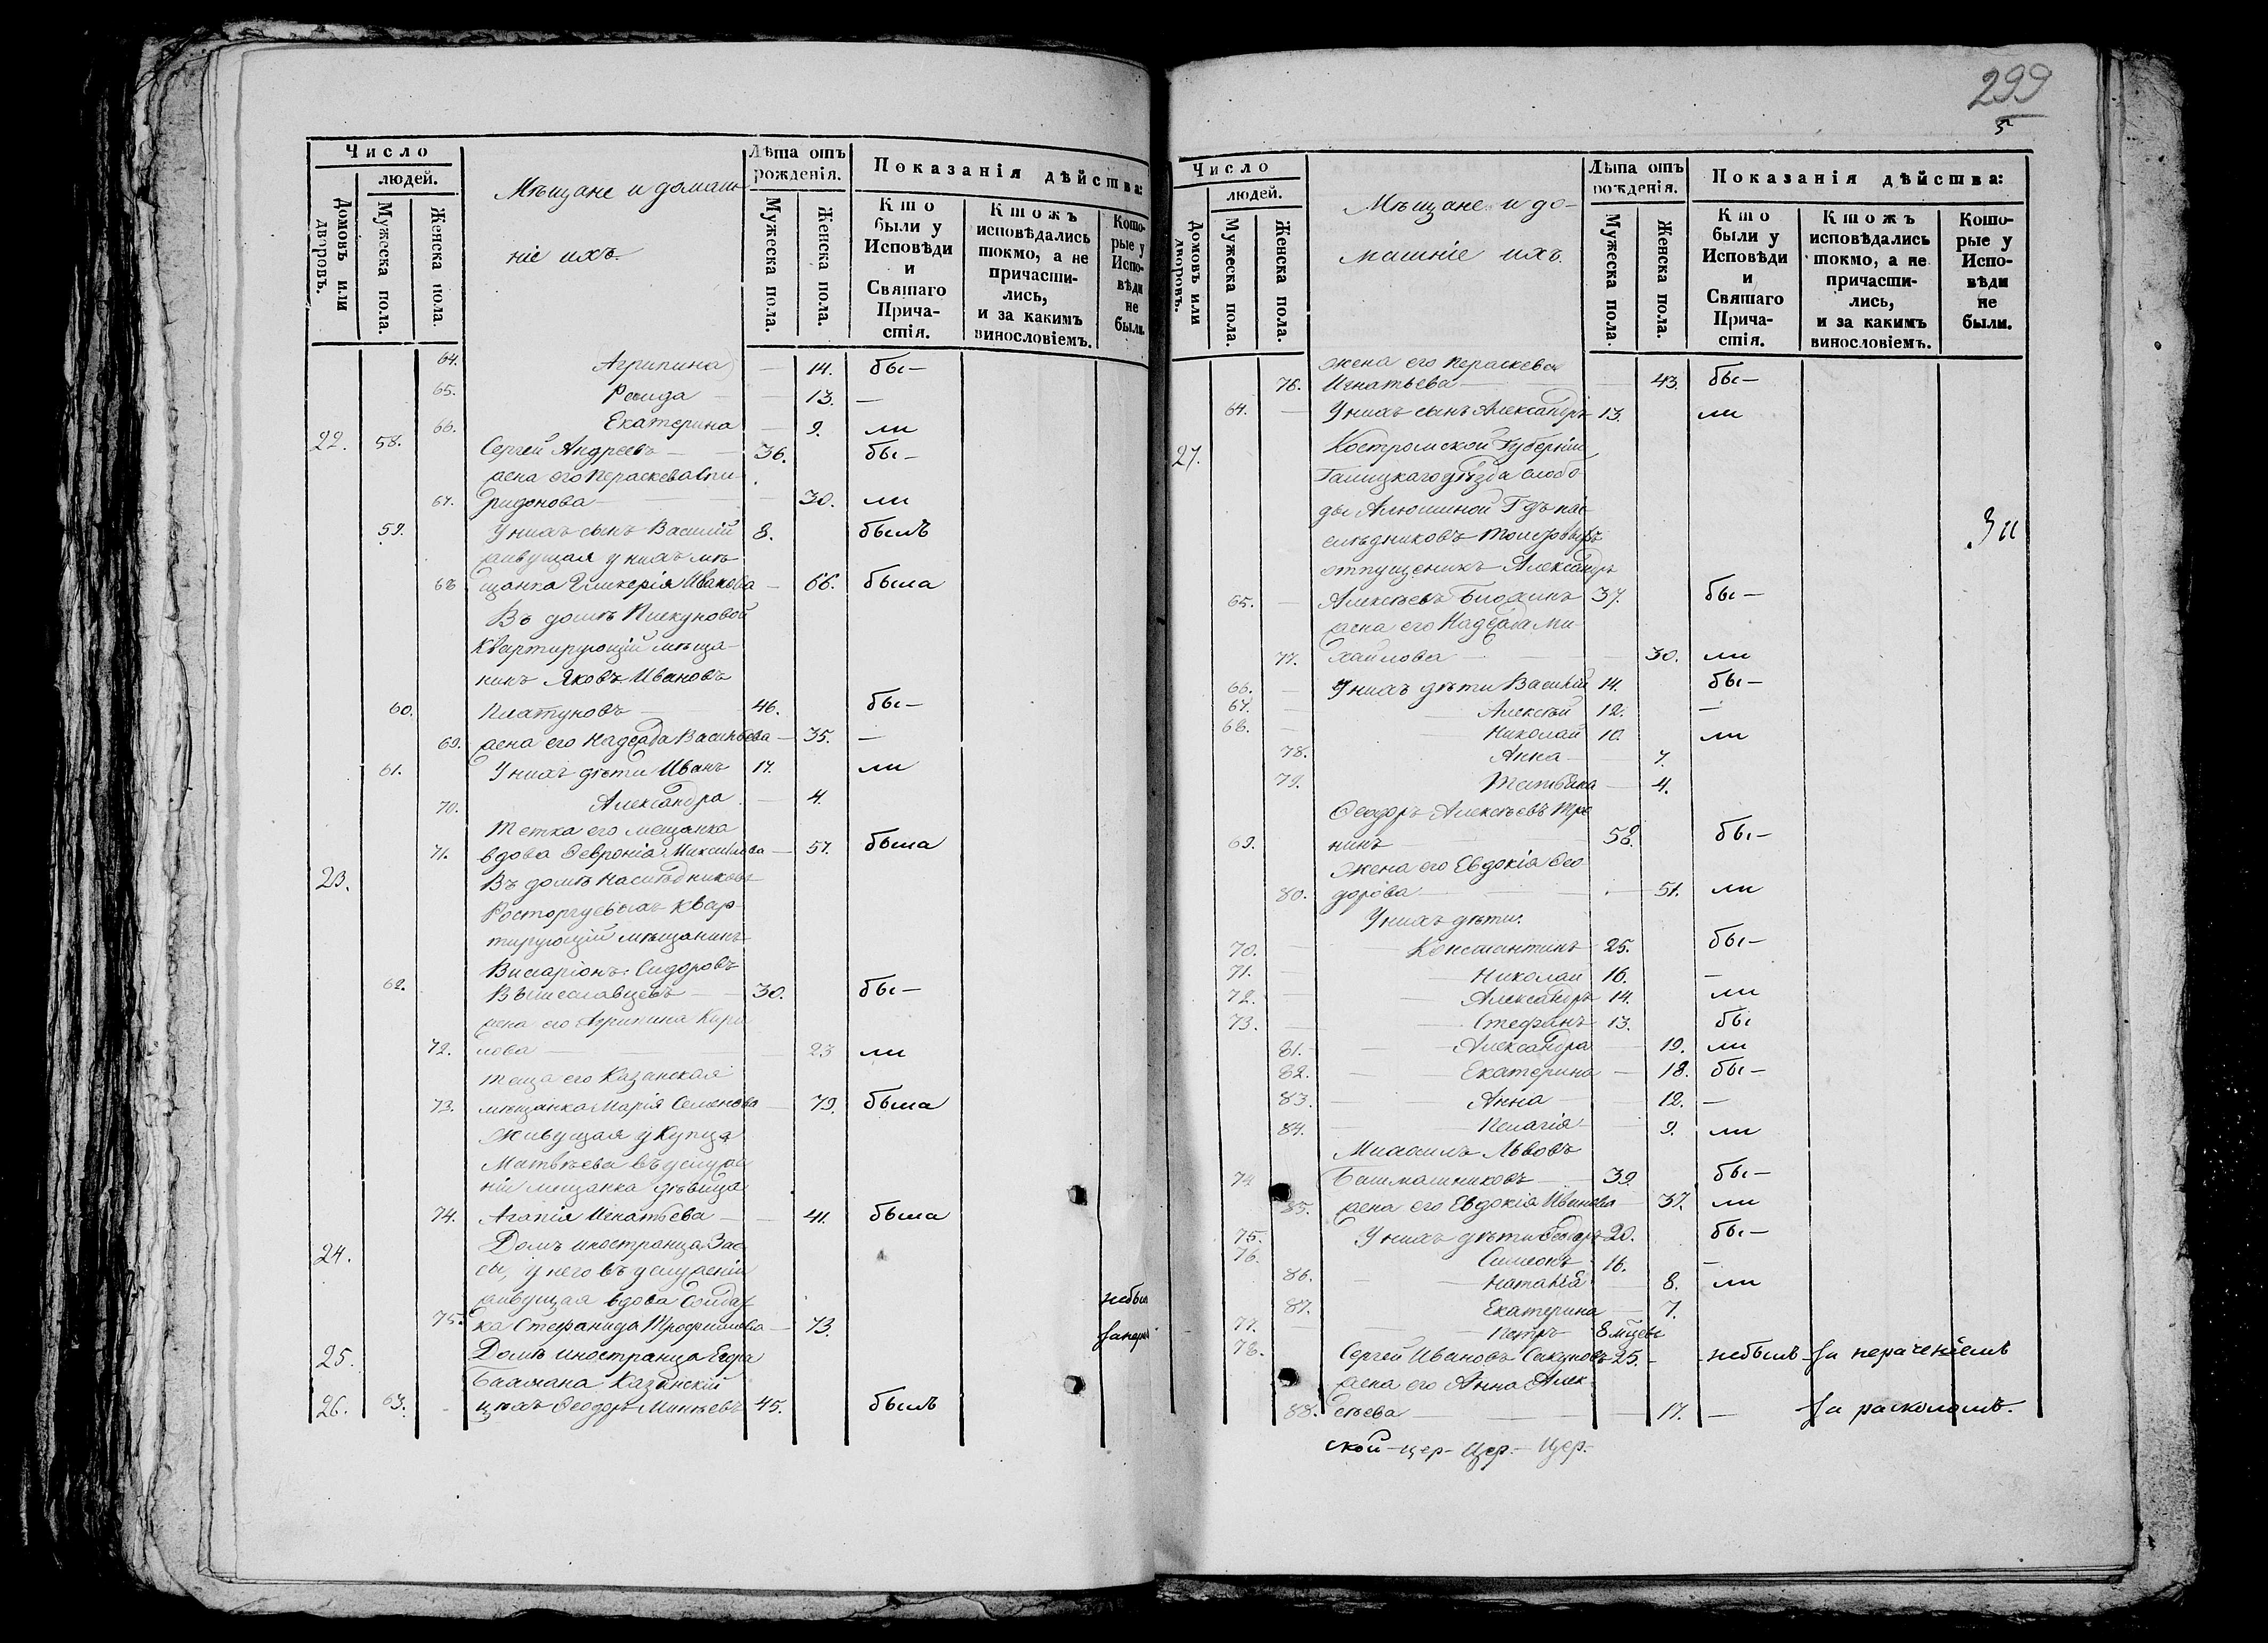 Число
людей.
Домовъ или дворовъ.
Мужеска пола.
Женска пола.
Мѣщане и домаш-
ніе ихъ.
Лѣта отъ рожденія.
Мужеска пола.
Женска пола.
Показанія дѣйства:
Кто были у Исповѣди и Святаго Прича-стія.
Ктожъ исповѣдались токмо, а не причасти-лись, и за какимъ винословіемъ.
Кото-рые у Испо-вѣди не были.
64. Агрипина — 14. бы—
65. Раида — 13. —
66. Екатерина — 9. ли
22. 58. Сергей Андреевъ — 36. бы—
жена его Параскева Спи-
67. ридонова — 30. ли
59. У нихъ сынъ Василій 8. былъ
живущая у нихъ мѣ-
68 щанка Гликерія Иванова — 66. была
Въ домѣ Пискуновой
квартирующій мѣща-
нинъ Яковъ Ивановъ
60. Платуновъ — 46. бы—
69. жена его Надежда Васильева — 35. —
61. У нихъ дѣти Иванъ 17. ли
70. Александра — 4.
Тетка его мещанка
71. вдова Февронія Максимова — 57. была
23. Въ домѣ наслѣдниковъ
Расторгуевыхъ квар-
тирующій мѣщанинъ
Висаріонъ Сидоровъ
62. Вышеславцевъ — 30. бы—
жена его Агрипина Кири
72. лова — 23 ли
теща его Казанская
73. мѣщанка Марія Семенова — 79. была
Живущая у купца
Матвѣева въ услуже
ніи мещанка дѣвица
74. Агапія Игнатьева — 41. была
24. Домъ иностранца Зас
сы, у него въ услуженіи
живущая вдова Солдат
75. ка Стефанида Трофимова — 73.
25. Домъ иностранца Егора
Бахмана Казанскій
26. 63. цѣхъ Феодоръ Минѣевъ 45. былъ
299
5
Число
людей.
Домовъ или дворовъ.
Мужеска пола.
Женска пола.
Мѣщане и до-
машніе ихъ.
Лѣта отъ рожденія.
Мужеска пола.
Женска пола.
Показанія дѣйства:
Кто были у Исповѣди и Святаго Прича-стія.
Ктожъ исповѣдались токмо, а не причасти-лись, и за какимъ винословіемъ.
Кото-рые у Испо-вѣди не были.
жена его Параскева
76. Игнатьева — 43. бы—
64. — У нихъ сынъ Александръ 13. ли
27. Костромской Губерніи
Галицкаго уѣзда слобо
ды Алюшиной Г дъ на
слѣдниковъ
отпущеникъ Александръ
65. — Алексѣевъ Блохинъ 37. бы—
жена его Надежда Ми-
77. хайлова — 30. ли
66. — У нихъ дѣти Василій 14. бы—
67. — Алексѣй 12. —
68. — Николай 10. ли
78. Анна — 7.
79. Татьяна — 4.
Феодоръ Алексѣевъ
69. нинъ — 58. бы—
Жена его Евдокія Фео
80. дорова — 51. ли
У нихъ дѣти:
70. — Константинъ 25. бы—
71. — Николай 16. —
72. — Александръ 14. ли
73. — Стефанъ 13. бы
81. — Александра 19. ли
82. — Екатерина — 18. бы—
83. — Анна — 12. —
84. — Пелагія — 9. ли
Михаилъ Львовъ
74 Башмашниковъ — 39. бы—
85. жена его Евдокія Иванова — 37. ли
75. У нихъ дѣти Феодоръ 20. бы—
76. Симеонъ 16. —
86. — Наталія — 8. ли
87. Екатерина — 7.
77. — Петръ 8 мѣцовъ
78. Сергей Ивановъ Сакуновъ 25. — небылъ за нераченіемъ
жена его Анна Алек-
88. сѣева — 17. — за расколомъ.
ской — цер — Цер — Цер.